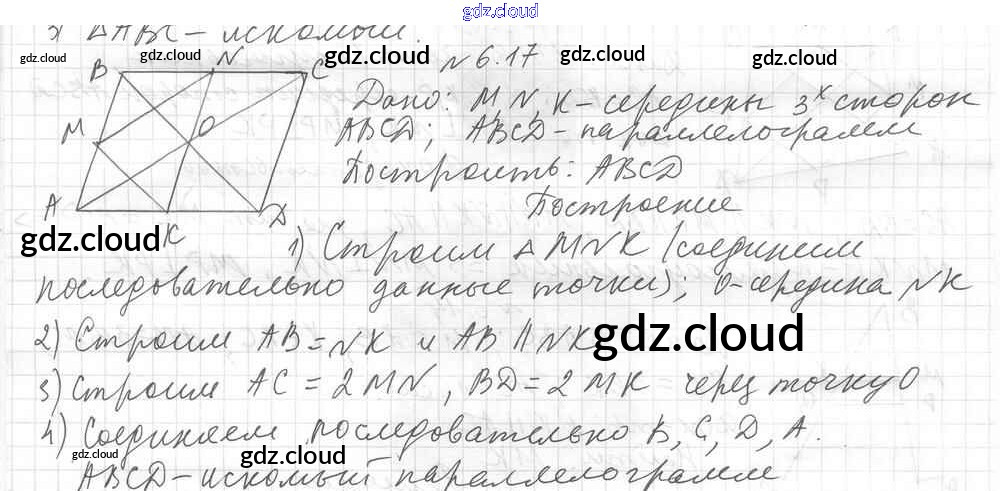 gdz.cloud
3) △ABC – искомый.
gdz.cloud gdz.cloud gdz.cloud gdz.cloud gdz.cloud
B N C
M O
A K D
№ 6.17
Дано: M, N, K – середины 3ˣ сторон
ABCD; ABCD – параллелограмм
Построить: ABCD
Построение
gdz.cloud
1) Строим △ MNK (соединим
последовательно данные точки), O – середина NK
2) Строим AB = NK и AB ∥ NK
gdz.cloud
3) Строим AC = 2MN, BD = 2MK – через точку O
4) Соединяем последовательно B, C, D, A.
gdz.cloud gdz.cloud
ABCD – искомый параллелограмм